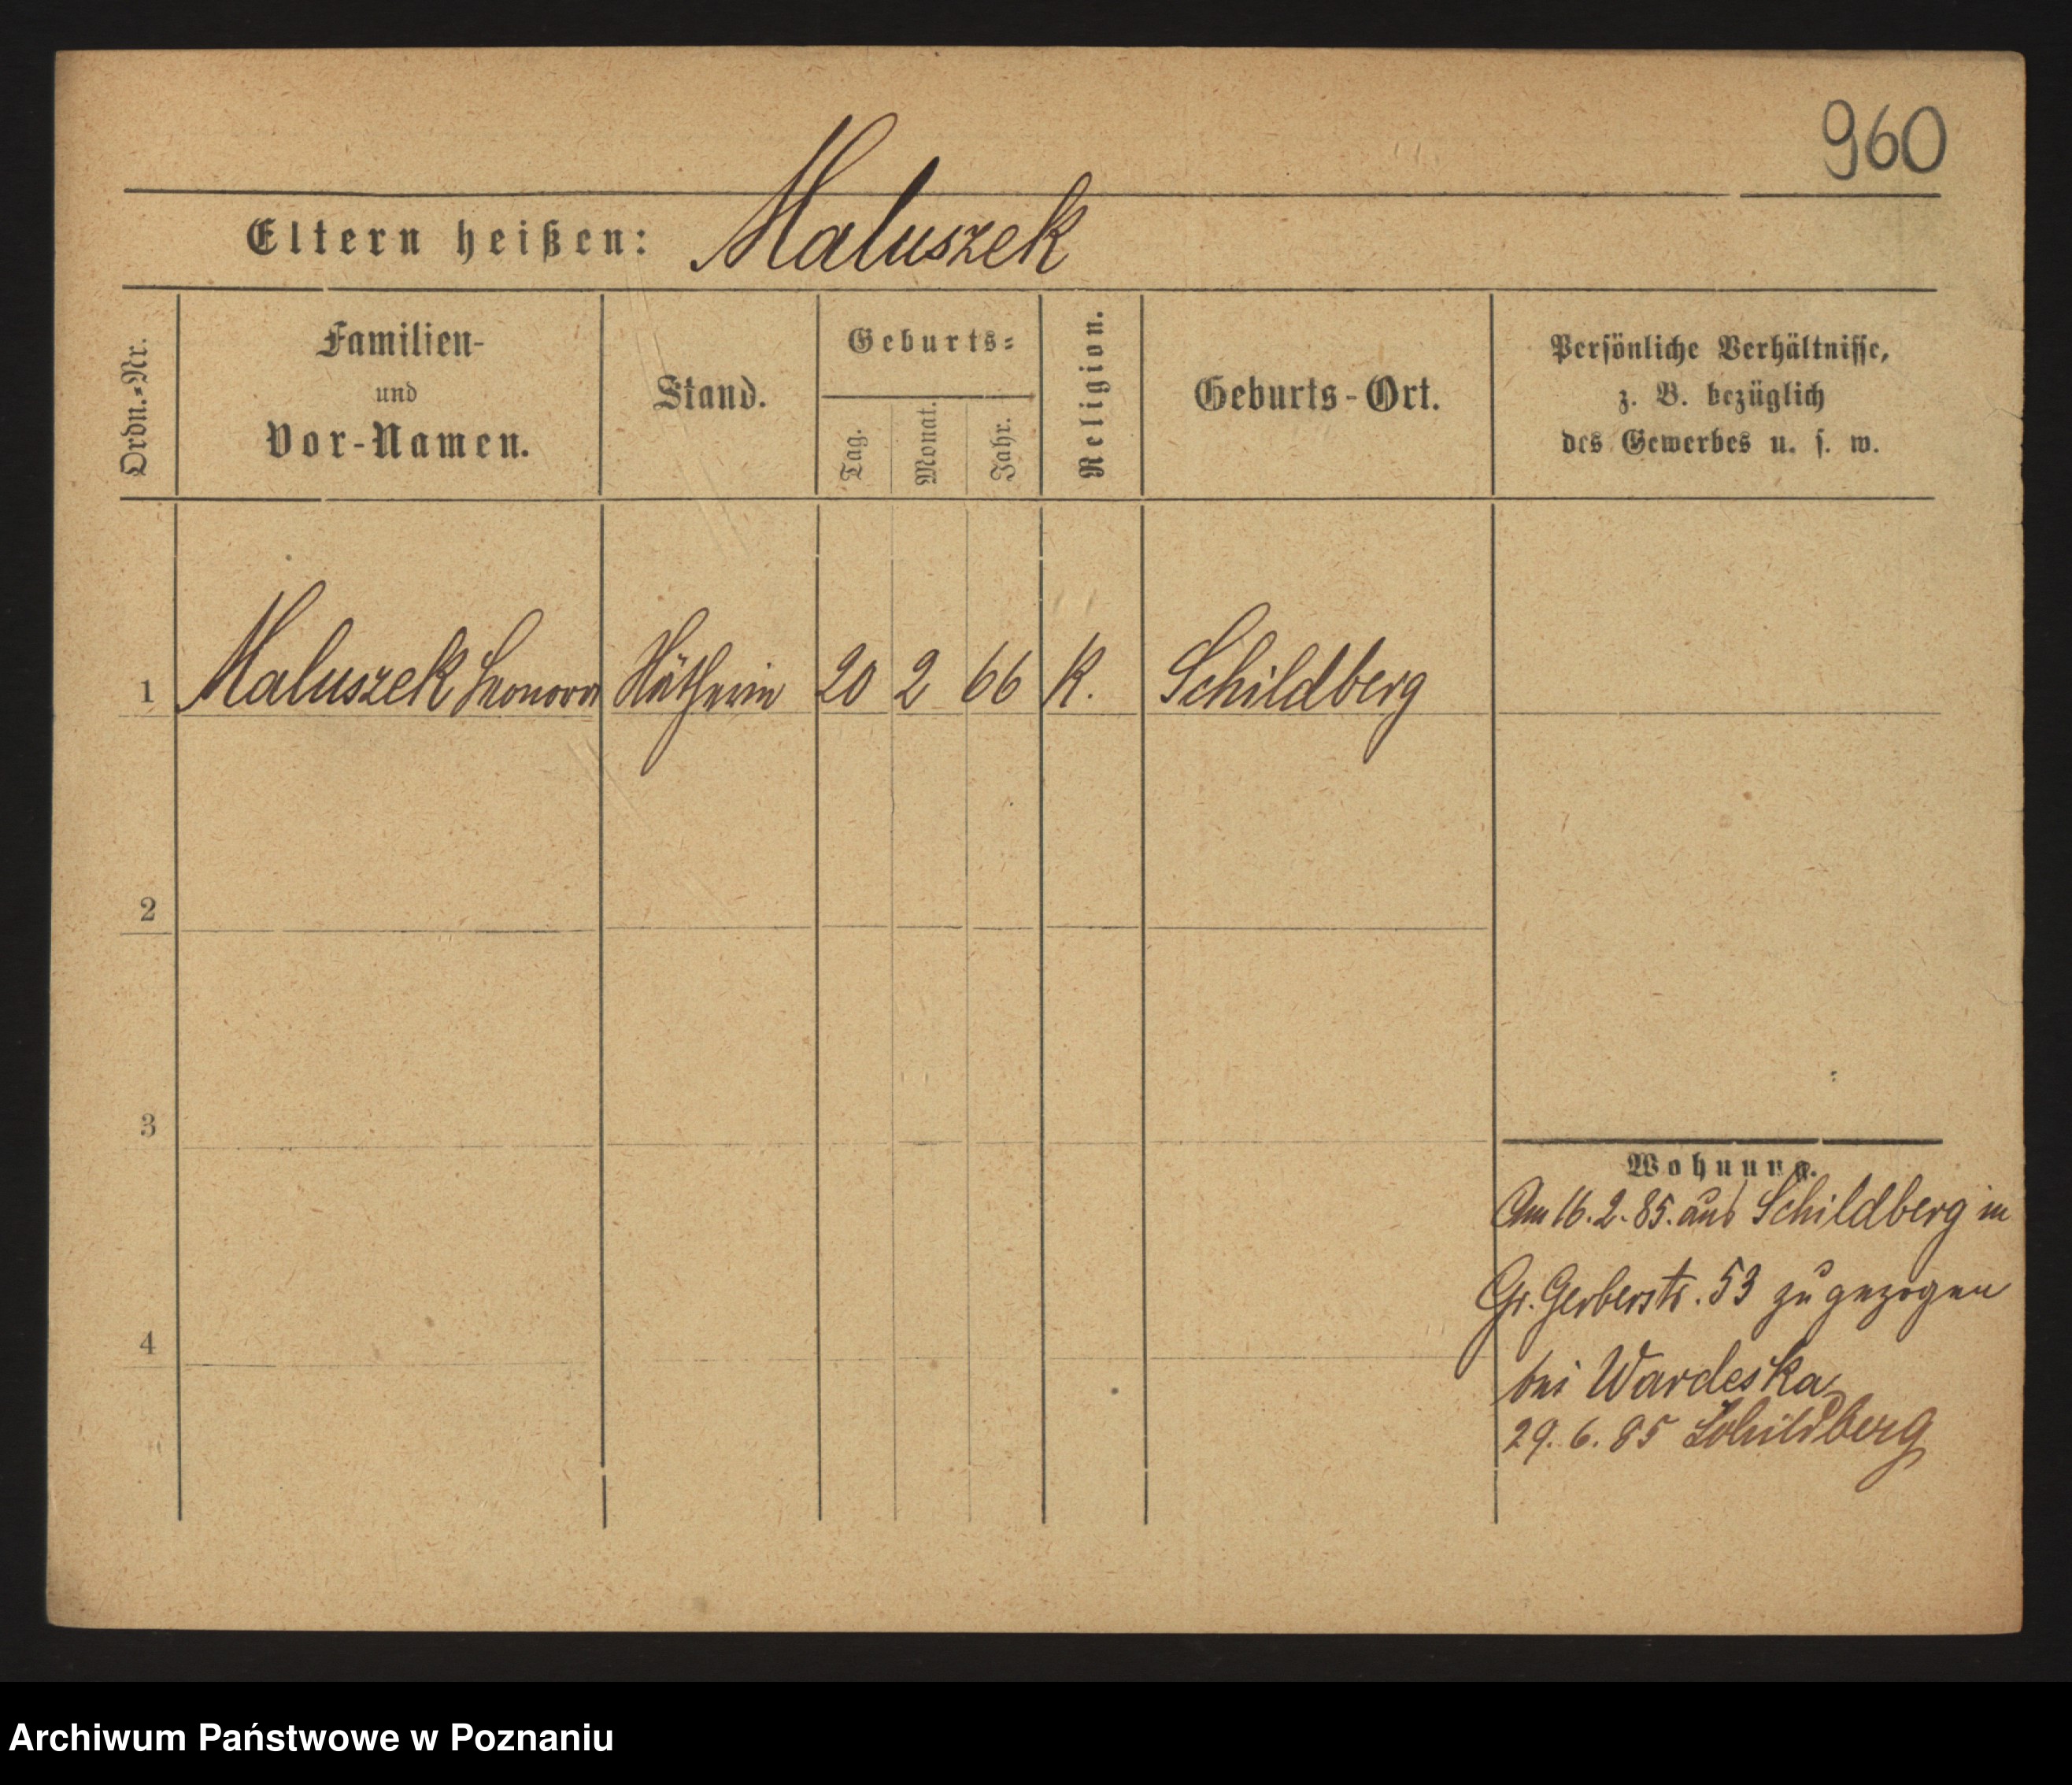 960
Eltern heißen: Maluszek
Ordn.-Nr.
Familien-
und
Vor-Namen.
Stand.
Geburts-
Tag.
Monat.
Jahr.
Religion.
Geburts-Ort.
Persönliche Verhältnisse,
z. B. bezüglich
des Gewerbes u. s. w.
1 Maluszek Leonora Nätherin 20 2 66 K. Schildberg
2
3
Wohnung.
Am 16.2.85. aus Schildberg in
Gr. Gerberstr. 53 zugezogen
4
bei Wardeska
29.6.85 Schildberg
Archiwum Państwowe w Poznaniu